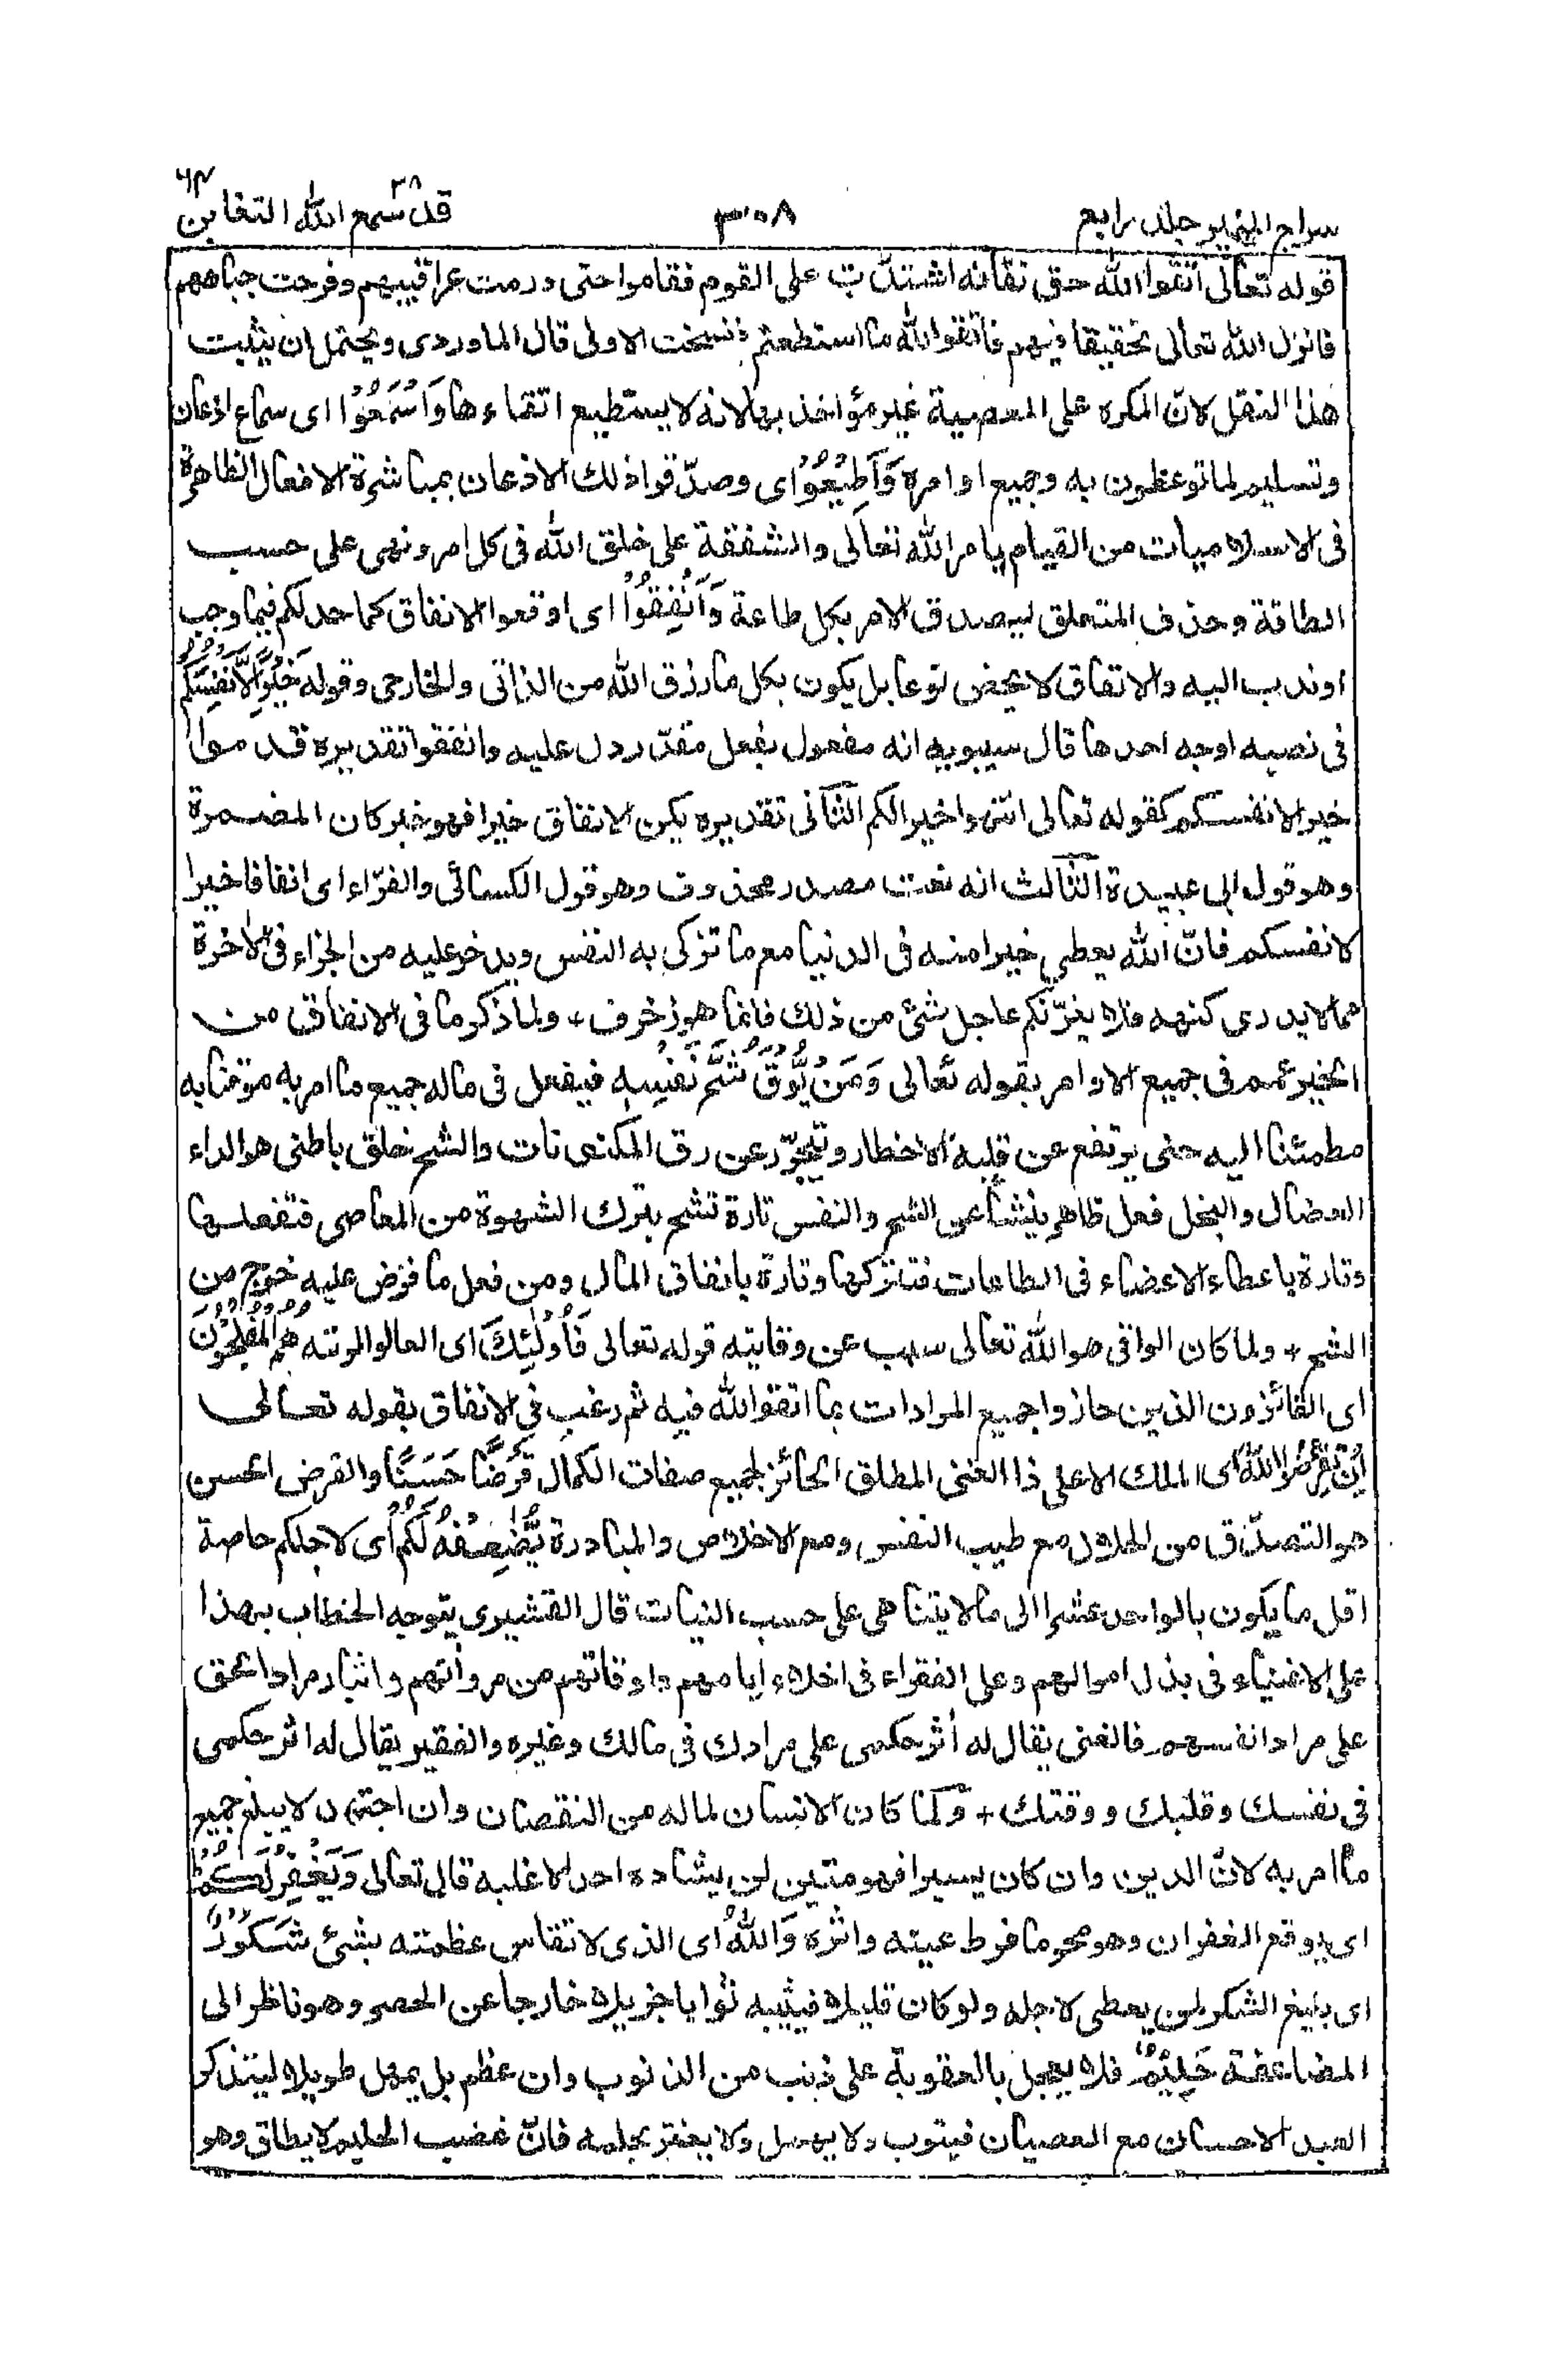 سراج المنير جلد رابع
٣٠٨
قد سمع الله ٢٨ التغابن ٦٤
قوله تعالى اتقوا الله حق تقاته اشتدّت على القوم فقاموا حتى ورمت عراقيبهم وقرحت جباههم
فانزل الله تعالى تخفيفا فيهم فاتقوا الله ما استطعتم فنسخت الاولى قال الماوردى ويحتمل ان يثبت
هذا النقل لانّ المكره على المعصية غير مؤاخذ بها لانه لا يستطيع اتقاءها وَاسْمَعُوْا اى سماع اذعان
وتسليم لما توعظون به وجميع اوامره وَاَطِيْعُوْا اى وصدّقوا ذلك الاذعان بمباشرة الافعال الظاهرة
فى الاسلاميات من القيام بامر الله تعالى والشفقة على خلق الله فى كل امر ونهى على حسب
الطاقة وحذف المتعلق ليصدق الامر بكل طاعة وَاَنْفِقُوْا اى اوقعوا الانفاق كما حد لكم فيما وجب
او ندب اليه والانفاق لا يخص نوعا بل يكون بكل ما رزق الله من الذاتى والخارجى وقوله خَيْرًا لِّاَنْفُسِكُمْ
فى نصبه اوجه احدها قال سيبويه انه مفعول بفعل مقدّر دل عليه وانفقوا تقديره قدموا
خيرا لانفسكم كقوله تعالى انتهوا خيرا لكم الثانى تقديره يكن الانفاق خيرا فهو خبر كان المضمرة
وهو قول ابى عبيدة الثالث انه نعت مصدر محذوف وهو قول الكسائى والفرّاء اى انفاقا خيرا
لانفسكم فانّ الله يعطى خيرا منه فى الدنيا مع ما تزكى به النفس ويدخر عليه من الجزاء فى الاخرة
مما لا يدرى كنهه فلا يغرّنكم عاجل شئ من ذلك فانما هو زخرف + ولما ذكر ما فى الانفاق من
الخير عمم فى جميع الاوامر بقوله تعالى وَمَنْ يُّوْقَ شُحَّ نَفْسِهٖ فيفعل فى ماله جميع ما امر به موقنا به
مطمئنا اليه حتى يرتفع عن قلبه الاخطار ويتحرّر عن رق المكنونات والشح خلق باطنى هو الداء
العضال والبخل فعل ظاهر ينشأ عن الشح والنفس تارة تشح بترك الشهوة من المعاصى فتفعلها
وتارة باعطاء الاعضاء فى الطاعات فتتركها وتارة بانفاق المال ومن فعل ما فرض عليه خرج من
الشح + ولما كان الواقى هو الله تعالى سبب عن وقايته قوله تعالى فَاُولٰٓئِكَ اى العالو المرتبه هُمُ الْمُفْلِحُوْنَ
اى الفائزون الذين حازوا جميع المرادات بما اتقوا الله فيه ثم رغب فى الانفاق بقوله تعالى
اِنْ تُقْرِضُوا اللّٰهَ اى الملك الاعلى ذا الغنى المطلق الحائز لجميع صفات الكمال قَرْضًا حَسَنًا والقرض الحسن
هو التصدّق من الحلال مع طيب النفس ومع الاخلاص والمبادرة يُّضٰعِفْهُ لَكُمْ اى لاجلكم خاصة
اقل ما يكون بالواحد عشرا الى ما لا يتناهى على حسب النيات قال القشيرى يتوجه الخطاب بهذا
على الاغنياء فى بذل اموالهم وعلى الفقراء فى اخلاء ايامهم واوقاتهم من مروآتهم وايثار مراد الحق
على مراد انفسهم فالغنى يقال له أثر حكمى على مرادك فى مالك وغيره والفقير يقال له اثر حكمى
فى نفسك وقلبك ووقتك + ولما كان الانسان لما له من النقصان وان اجتهد لا يبلغ جميع
ما امر به لانّ الدين وان كان يسيرا فهو متين لن يشاده احد الا غلبه قال تعالى وَيَغْفِرْ لَكُمْ
اى يوقع الغفران وهو محو ما فرط عينه واثره وَاللّٰهُ اى الذى لا تقاس عظمته بشئ شَكُوْرٌ
اى بليغ الشكر لمن يعطى لاجله ولو كان قليلا فيثيبه ثوابا جزيلا خارجا عن الحصر وهو ناظر الى
المضاعفة حَلِيْمٌ فلا يعجل بالعقوبة على ذنب من الذنوب وان عظم بل يمهل طويلا ليتذكر
العبد الاحسان مع العصيان فيتوب ولا يهمل ولا يغتر بحلمه فانّ غضب الحليم لا يطاق وهو